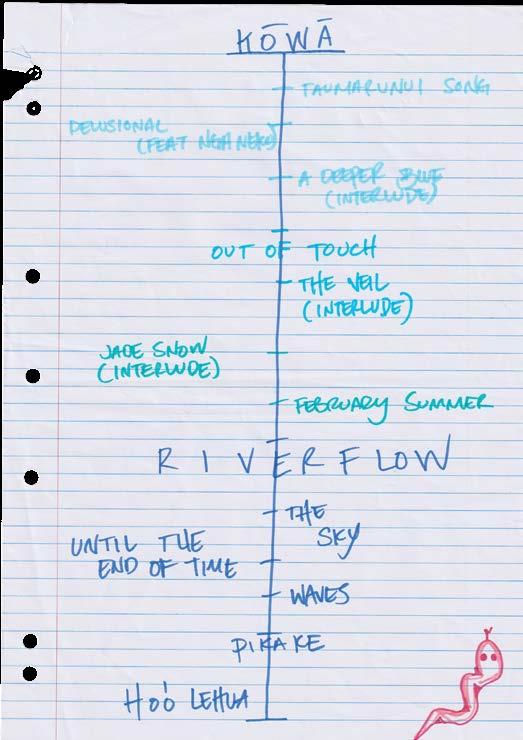 KŌWĀ
TAUMARUNUI SONG
DELUSIONAL
(FEAT NGA NEKO)
A DEEPER BLUE
(INTERLUDE)
OUT OF TOUCH
THE VEIL
(INTERLUDE)
JADE SNOW
(INTERLUDE)
FEBRUARY SUMMER
RIVERFLOW
THE
SKY
UNTIL THE
END OF TIME
WAVES
PIKAKE
HOÓ LEHUA